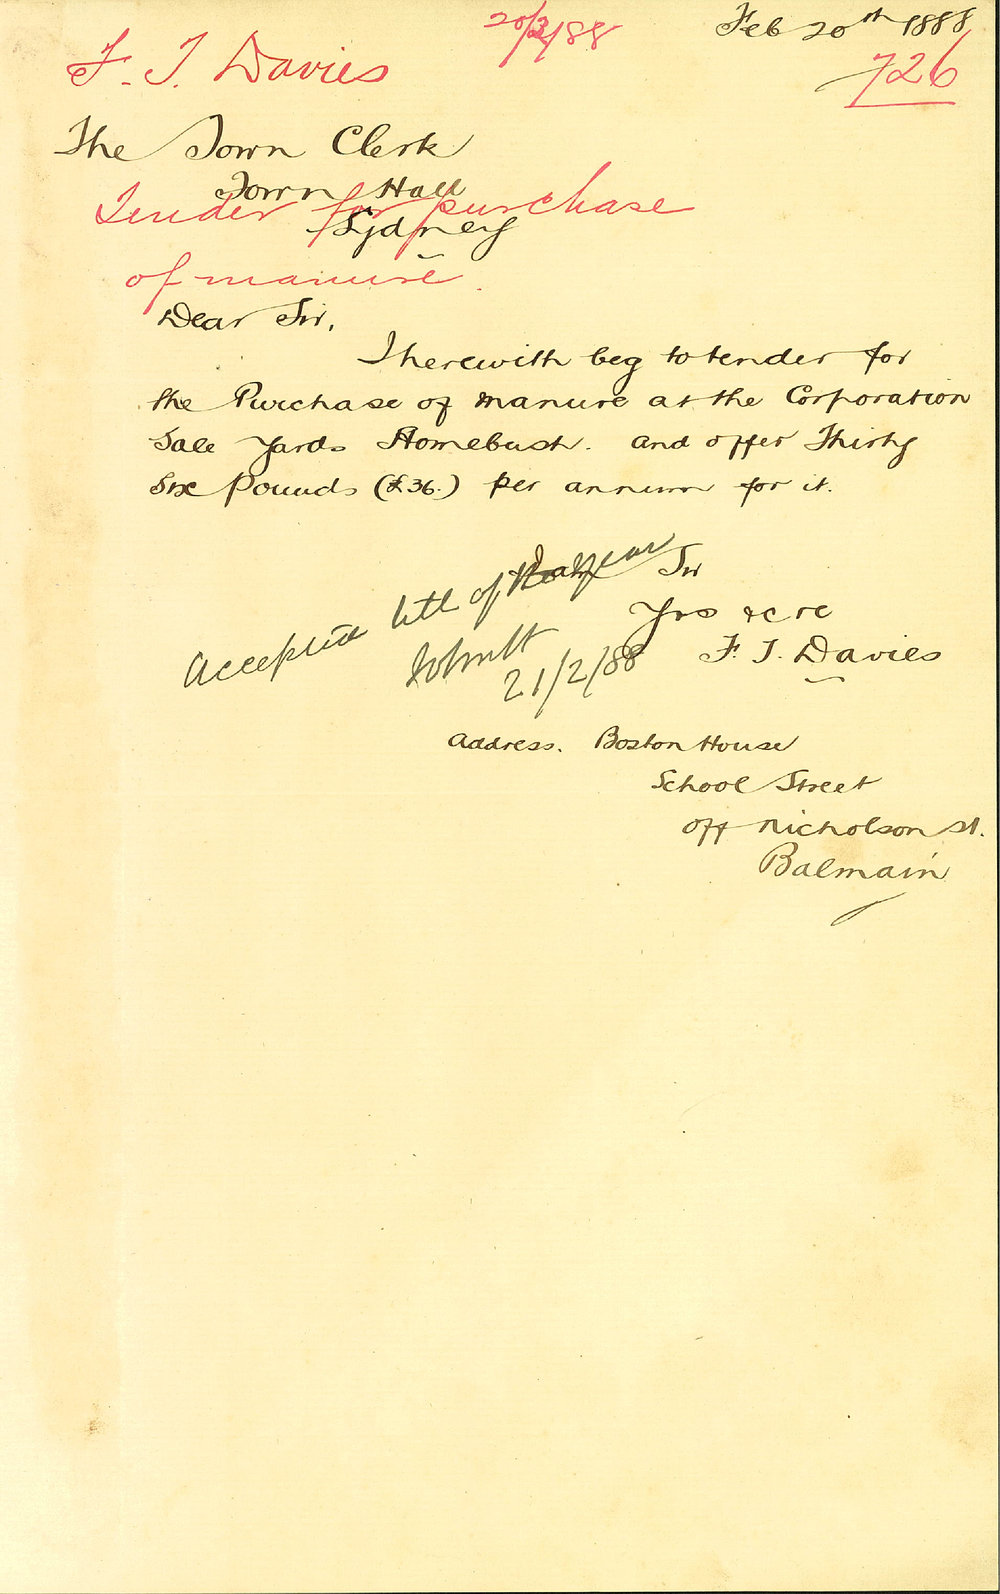 20/2/88
Feb 20th 1888
F. T. Davies
726
The Town Clerk
Town Hall
Tender for purchase
Sydney
of manure.
Dear Sir,
I herewith beg to tender for
the Purchase of manure at the Corporation
Sale Yards Homebush. and offer Thirty
Six Pounds (£36.) per annum for it.
Accepted till of year
Sir
Yrs &c &c
F. T. Davies
21/2/88
Address. Boston House
School Street
off Nicholson St.
Balmain